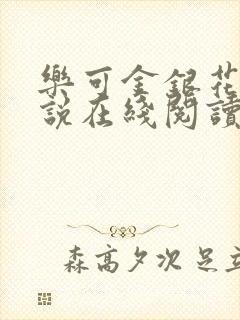 樂可金銀花
說在綫閱讀
森高夕次 足立